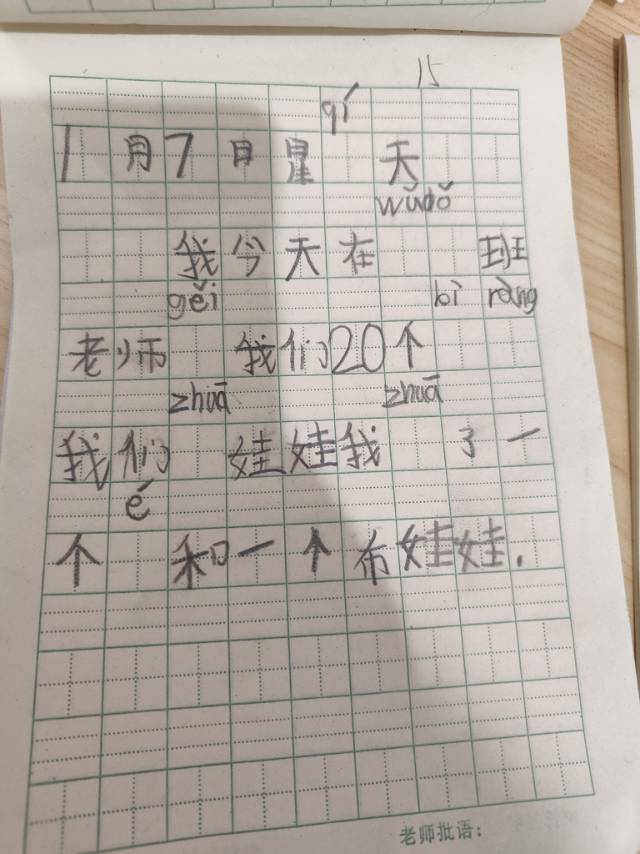 15
qí
1月7日星 天
wǔdǒ
我今天在 班
gěi bì ràng
老师 我们20个
zhuā zhuā
我们 娃娃我 了一
é
个 和一个布娃娃.
老师批语: